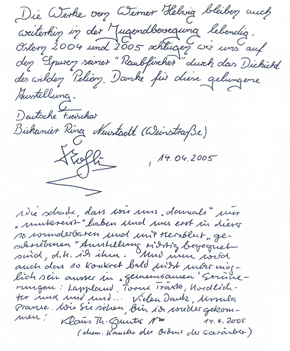 Die Werke von Werner Helwig bleiben auch
weiterhin in der Jugendbewegung lebendig.
Ostern 2004 und 2005 schlugen wir uns auf
den Spuren seiner "Raubfischer" durch das Dickicht
des wilden Pelion. Danke für diese gelungene
Ausstellung.
Deutsche Freischar
Ring Neustadt (Weinstraße)
, 14.04.2005
Wie schade, dass wir uns "damals" nur
"umkreist" haben und uns erst in dieser
so wunderbaren und mit Herzblut "ge-
schriebenen" Ausstellung richtig begegnet
sind, d.h. ich ihm. Und nun wird
auch das so konkret bald nicht mehr mög-
lich sein ausser in "gemeinsamen"
: Lappland, Torne Träsk, Nordlich-
ter und und und... Vielen Dank, Ursula
Prause. Wie Sie sehen, bin ich wiedergekom-
men!
14.4.2005
(ehem. Kanzler des Ordens der )